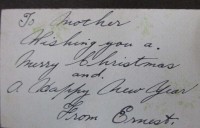 To Mother
Wishing you a.
Merry Christmas
and.
A Happy New Year
From Ernest.